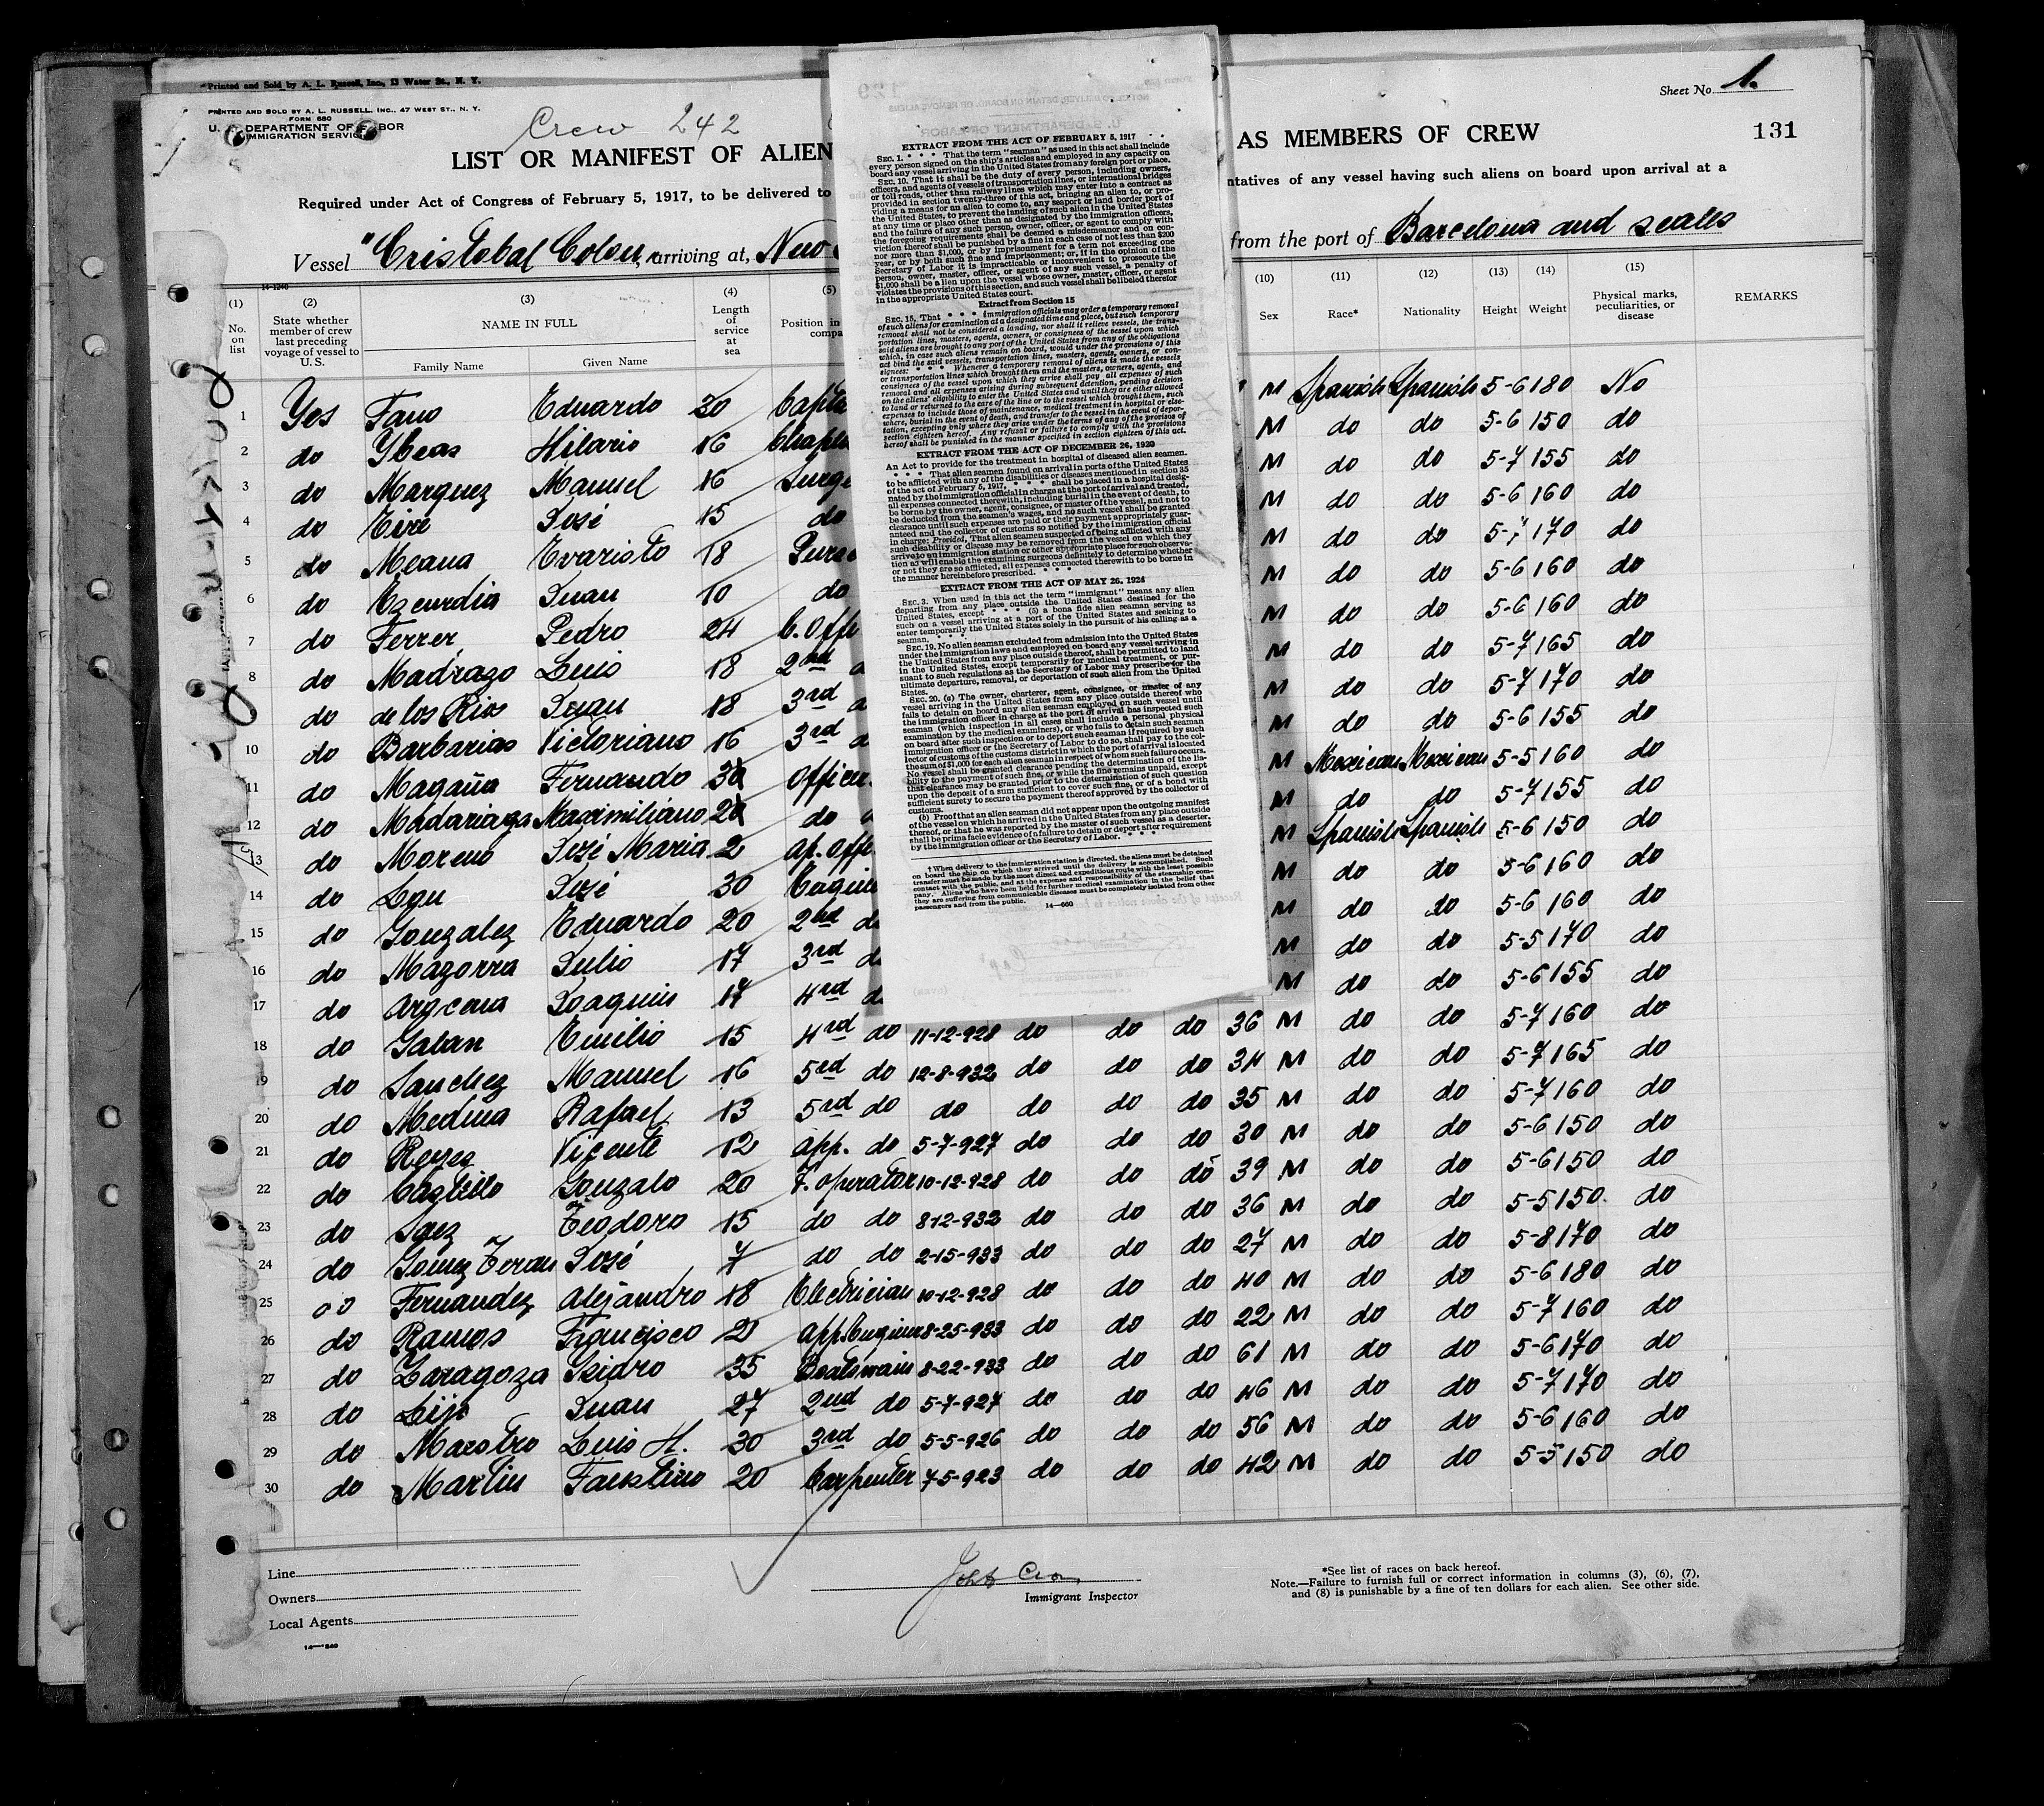 *Printed and Sold by A. L. Russell, Inc., 13 Water St., N. Y.
PRINTED AND SOLD BY A. L. RUSSELL, INC., 47 WEST ST., N. Y.
FORM 680
U. S. DEPARTMENT OF LABOR
IMMIGRATION SERVICE
Crew 242
Sheet No. 1.
LIST OR MANIFEST OF ALIEN
AS MEMBERS OF CREW
131
Required under Act of Congress of February 5, 1917, to be delivered to
ntatives of any vessel having such aliens on board upon arrival at a
Vessel "Cristobal Colon", arriving at, New
from the port of Barcelona and scales
14-1240
(1) (2) (3) (4) (5) (10) (11) (12) (13) (14) (15)
No. on list
State whether member of crew last preceding voyage of vessel to U. S.
NAME IN FULL
Family Name Given Name
Length of service at sea
Position in
compa
Sex Race* Nationality Height Weight
Physical marks, peculiarities, or disease
REMARKS
1 Yes Fano Eduardo 20 Capta M Spanish Spanish 5-6 180 No
2 do Ybeas Hilario 16 Chapl M do do 5-6 150 do
3 do Marquez Manuel 16 Surge M do do 5-7 155 do
4 do José 15 do M do do 5-6 160 do
5 do Meana Evaristo 18 Purse M do do 5-7 170 do
6 do Ezcurdia Juan 10 do M do do 5-6 160 do
7 do Ferrer Pedro 24 C. Offi M do do 5-6 160 do
8 do Madrazo Luis 18 2nd M do do 5-7 165 do
do de los Rios Juan 18 3rd M do do 5-7 170 do
10 do Barbarias Victoriano 16 3rd M do do 5-6 155 do
11 do Magaña Fernando Officer M Mexican Mexican 5-5 160 do
12 do Madariaga Maximiliano do M do do 5-7 155 do
13 do Moreno José Maria 2 Ap. Offi M Spanish Spanish 5-6 150 do
14 do José 30 Engine M do do 5-6 160 do
15 do Gonzalez Eduardo 20 2nd do M do do 5-6 160 do
16 do Mazorra Julio 17 3rd do M do do 5-5 170 do
17 do Joaquin 17 4rd do M do do 5-6 155 do
18 do Galan Emilio 15 4rd do 11-12-928 do do do 36 M do do 5-7 160 do
19 do Sanchez Manuel 16 5rd do 12-8-932 do do do 34 M do do 5-7 165 do
20 do Medina Rafael 13 5rd do do do do do 35 M do do 5-7 160 do
21 do Reyes Vicente 12 app. do 5-7-927 do do do 30 M do do 5-6 150 do
22 do Castillo Gonzalo 20 T. operator 10-12-928 do do do 39 M do do 5-6 150 do
23 do Saez Teodoro 15 do do 8-12-932 do do do 36 M do do 5-5 150 do
24 do Gomez Teran José 7 do do 2-15-933 do do do 27 M do do 5-8 170 do
25 do Fernandez Alejandro 18 Electrician 10-12-928 do do do 40 M do do 5-6 180 do
26 do Ramos Francisco 2 app. Engineer 8-25-933 do do do 22 M do do 5-7 160 do
27 do Zaragoza Isidro 35 Boatswain 8-22-933 do do do 61 M do do 5-6 170 do
28 do Lijo Juan 27 2nd do 5-7-927 do do do 46 M do do 5-7 170 do
29 do Maestro Luis H. 30 3rd do 5-5-926 do do do 56 M do do 5-6 160 do
30 do Martin Faustino 20 Carpenter 7-5-923 do do do 42 M do do 5-5 150 do
Line
Owners
Local Agents
14—1240
Immigrant Inspector
*See list of races on back hereof.
Note.—Failure to furnish full or correct information in columns (3), (6), (7),
and (8) is punishable by a fine of ten dollars for each alien. See other side.
EXTRACT FROM THE ACT OF FEBRUARY 5, 1917
SEC. 1. * * * That the term "seaman" as used in this act shall include
every person signed on the ship's articles and employed in any capacity on
board any vessel arriving in the United States from any foreign port or place.
SEC. 10. That it shall be the duty of every person, including owners,
officers, and agents of vessels of transportation lines, or international bridges
or toll roads, other than railway lines which may enter into a contract as
provided in section twenty-three of this act, bringing an alien to, or pro-
viding a means for an alien to come to, any seaport or land border port of
the United States, to prevent the landing of such alien in the United States
at any time or place other than as designated by the immigration officers,
and the failure of any such person, owner, officer, or agent to comply with
the foregoing requirements shall be deemed a misdemeanor and on con-
viction thereof shall be punished by a fine in each case of not less than $200
nor more than $1,000, or by imprisonment for a term not exceeding one
year, or by both such fine and imprisonment; or, if in the opinion of the
Secretary of Labor it is impracticable or inconvenient to prosecute the
person, owner, master, officer, or agent of any such vessel, a penalty of
$1,000 shall be a lien upon the vessel whose owner, master, officer, or agent
violates the provisions of this section, and such vessel shall be libeled therefor
in the appropriate United States court.
Extract from Section 15
SEC. 15. That * * * Immigration officials may order a temporary removal
of such aliens for examination at a designated time and place, but such temporary
removal shall not be considered a landing, nor shall it relieve vessels, the trans-
portation lines, masters, agents, owners, or consignees of the vessel upon which
said aliens are brought to any port of the United States from any of the obligations
which, in case such aliens remain on board, would under the provisions of this
act bind the said vessels, transportation lines, masters, agents, owners, or con-
signees: * * * Whenever a temporary removal of aliens is made the vessels
or transportation lines which brought them and the masters, owners, agents, and
consignees of the vessel upon which they arrive shall pay all expenses of such
removal and all expenses arising during subsequent detention, pending decision
on the aliens' eligibility to enter the United States and until they are either allowed
to land or returned to the care of the line or to the vessel which brought them, such
expenses to include those of maintenance, medical treatment in hospital or else-
where, burial in the event of death, and transfer to the vessel in the event of depor-
tation, excepting only where they arise under the terms of any of the provisos of
section eighteen hereof. Any refusal or failure to comply with the provisions
hereof shall be punished in the manner specified in section eighteen of this act.
EXTRACT FROM THE ACT OF DECEMBER 26, 1920
An Act to provide for the treatment in hospital of diseased alien seamen.
* * * * That alien seamen found on arrival in ports of the United States
to be afflicted with any of the disabilities or diseases mentioned in section 35
of the act of February 5, 1917, * * * * shall be placed in a hospital desig-
nated by the immigration official in charge at the port of arrival and treated,
all expenses connected therewith, including burial in the event of death, to
be borne by the owner, agent, consignee, or master of the vessel, and not to
be deducted from the seamen's wages, and no such vessel shall be granted
clearance until such expenses are paid or their payment appropriately guar-
anteed and the collector of customs so notified by the immigration official
in charge: Provided, That alien seamen suspected of being afflicted with any
such disability or disease may be removed from the vessel on which they
arrive to an immigration station or other appropriate place for such observa-
tion as will enable the examining surgeons definitely to determine whether
or not they are so afflicted, all expenses connected therewith to be borne in
the manner hereinbefore prescribed. * * *
EXTRACT FROM THE ACT OF MAY 26, 1924
SEC. 3. When used in this act the term "immigrant" means any alien
departing from any place outside the United States destined for the
United States, except * * * * (5) a bona fide alien seaman serving as
such on a vessel arriving at a port of the United States and seeking to
enter temporarily the United States solely in the pursuit of his calling as a
seaman. * * * *
SEC. 19. No alien seaman excluded from admission into the United States
under the immigration laws and employed on board any vessel arriving in
the United States from any place outside thereof, shall be permitted to land
in the United States, except temporarily for medical treatment, or pur-
suant to such regulations as the Secretary of Labor may prescribe for the
ultimate departure, removal, or deportation of such alien from the United
States.
SEC. 20. (a) The owner, charterer, agent, consignee, or master of any
vessel arriving in the United States from any place outside thereof who
fails to detain on board any alien seaman employed on such vessel until
the immigration officer in charge at the port of arrival has inspected such
seaman (which inspection in all cases shall include a personal physical
examination by the medical examiners), or who fails to detain such seaman
on board after such inspection or to deport such seaman if required by such
immigration officer or the Secretary of Labor to do so, shall pay to the col-
lector of customs of the customs district in which the port of arrival is located
the sum of $1,000 for each alien seaman in respect of whom such failure occurs.
No vessel shall be granted clearance pending the determination of the lia-
bility to the payment of such fine, or while the fine remains unpaid, except
that clearance may be granted prior to the determination of such question
upon the deposit of a sum sufficient to cover such fine, or of a bond with
sufficient surety to secure the payment thereof approved by the collector of
customs.
(b) Proof that an alien seaman did not appear upon the outgoing manifest
of the vessel on which he arrived in the United States from any place outside
thereof, or that he was reported by the master of such vessel as a deserter,
shall be prima facie evidence of a failure to detain or deport after requirement
by the immigration officer or the Secretary of Labor. * * *
†When delivery to the immigration station is directed, the aliens must be detained
on board the ship on which they arrived until the delivery is accomplished. Such
transfer must be made by the most direct and expeditious route with the least possible
contact with the public, and at the expense and responsibility of the steamship com-
pany. Aliens who have been held for further medical examination in the belief that
they are suffering from communicable diseases must be completely isolated from other
passengers and from the public.
14—660